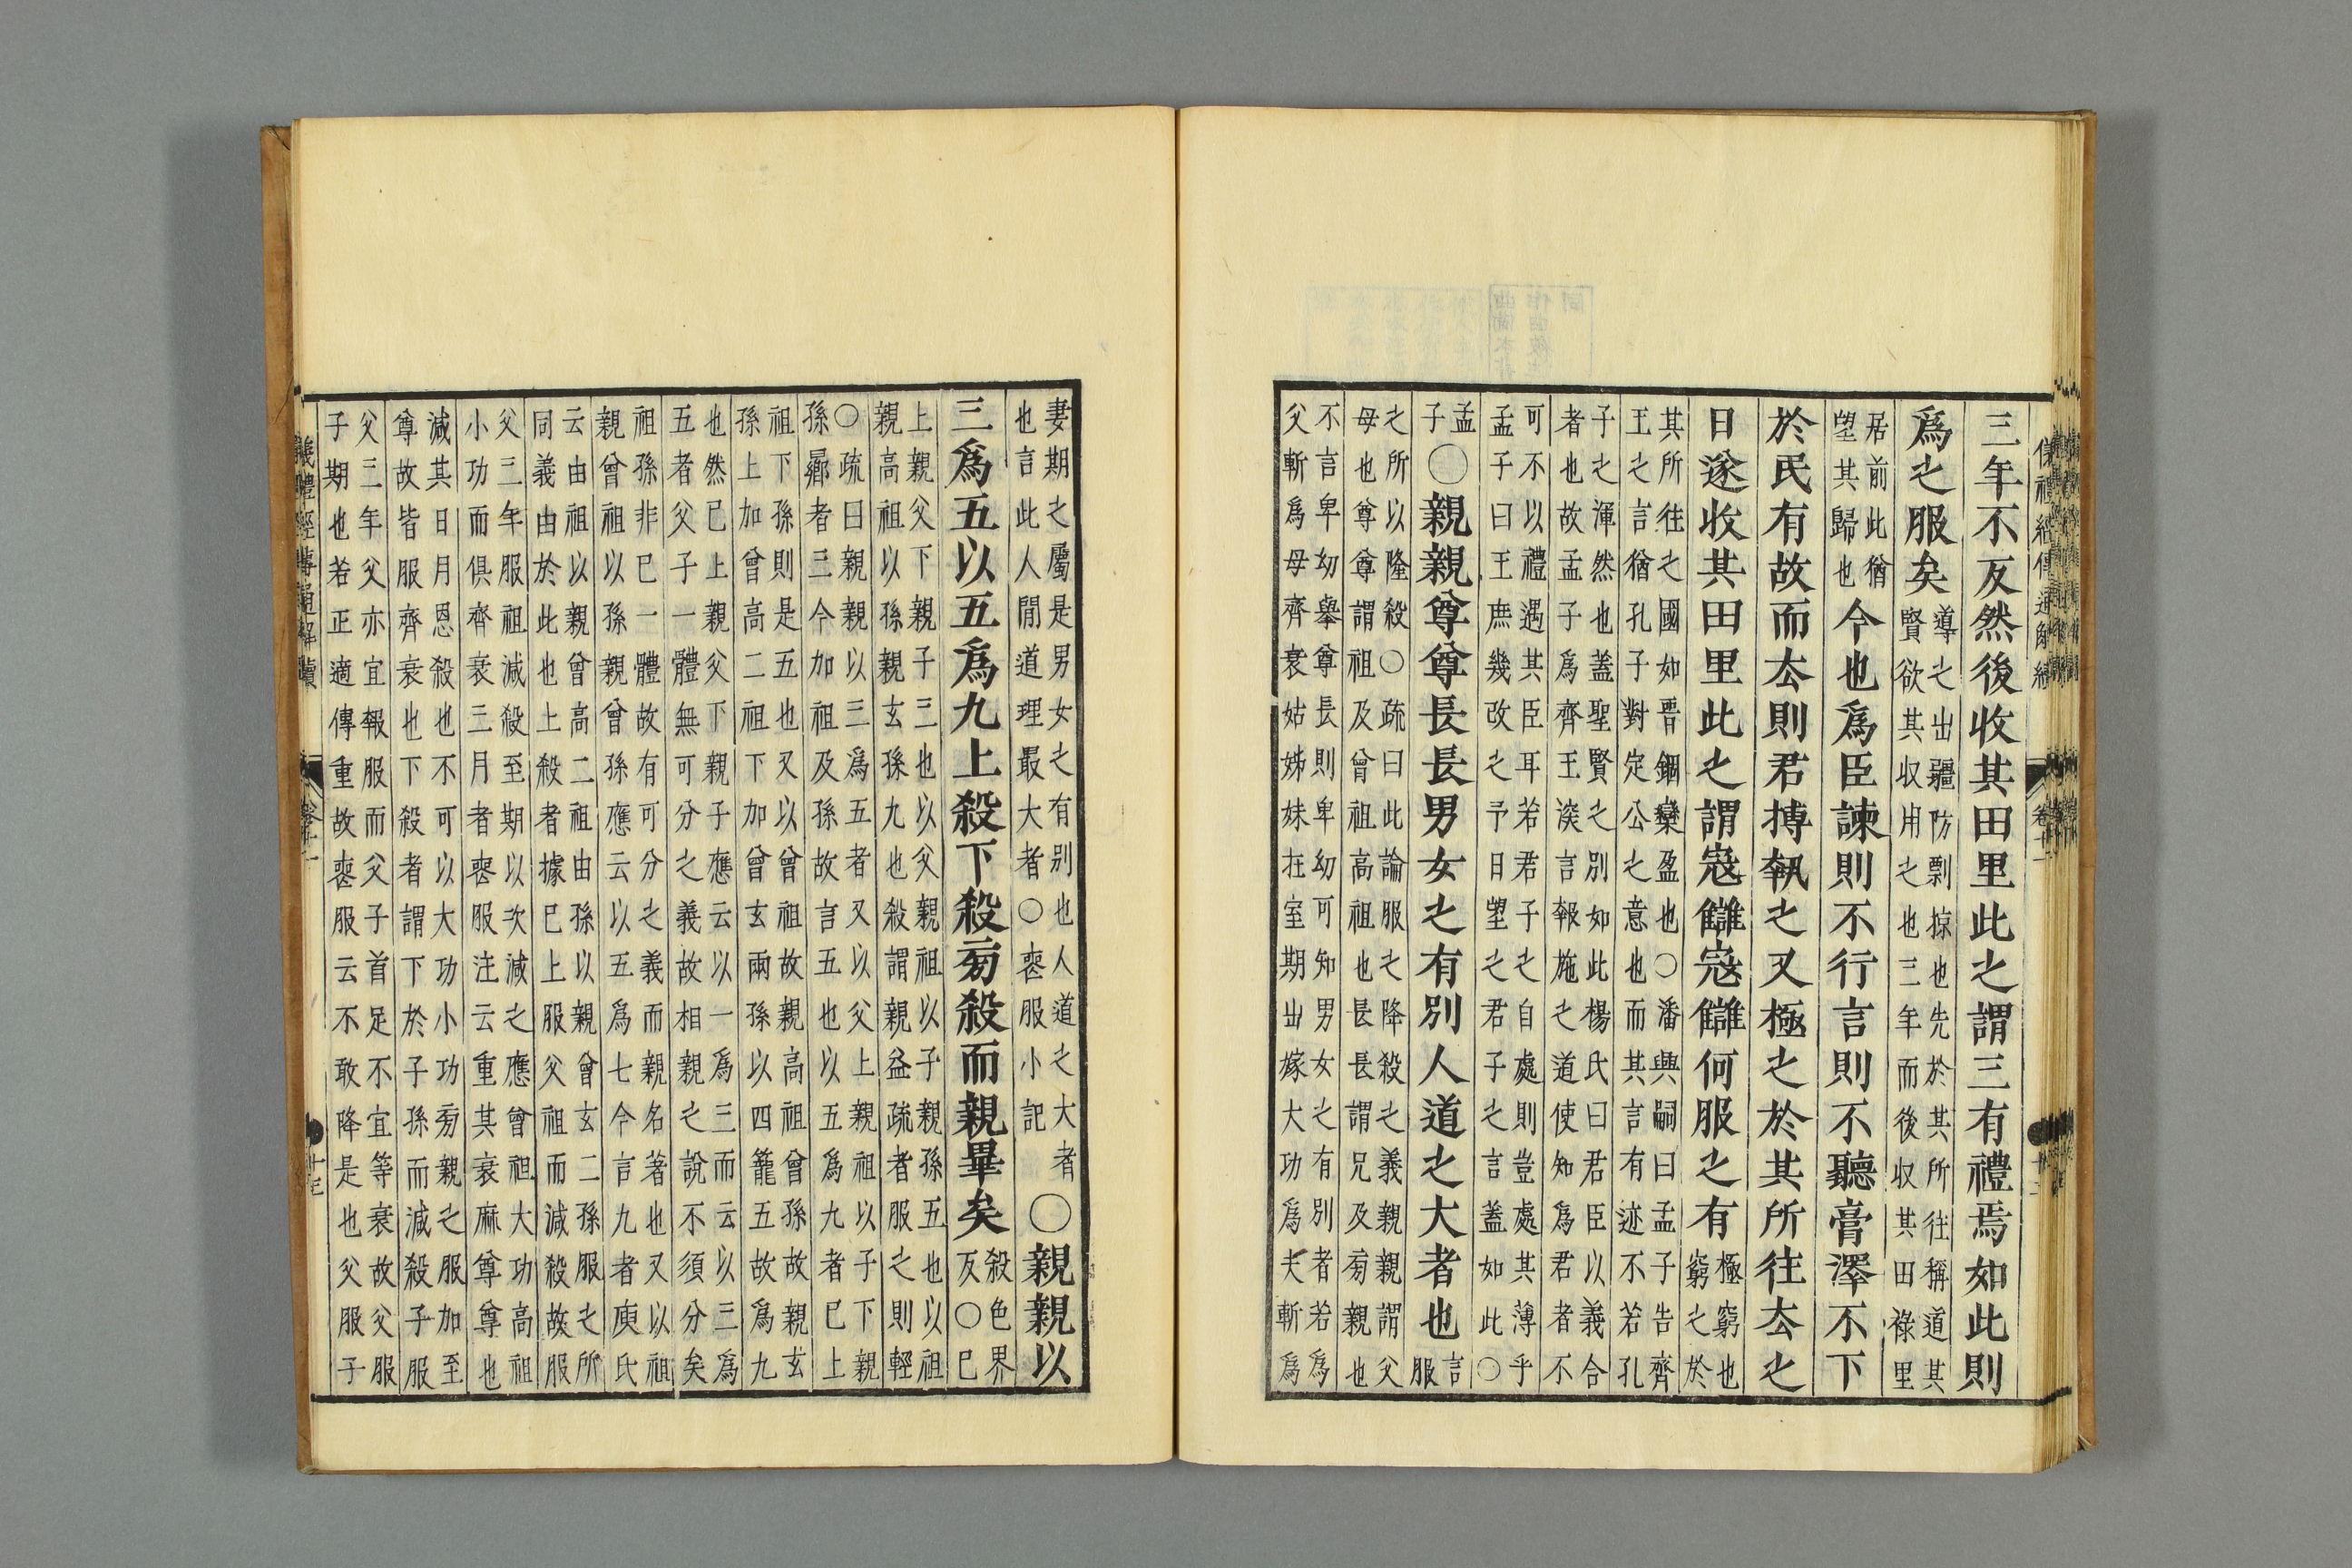 三年不反然後收其田里此之謂三有禮焉如此則
爲之服矣導之出疆防剽掠也先於其所往稱道其
賢欲其収用之也三年而後収其田祿里
居前此猶
望其歸也今也爲臣諫則不行言則不聽膏澤不下
於民有故而去則君搏執之又極之於其所往去之
日遂收其田里此之謂寇讎寇讎何服之有極窮也
窮之於
其所往之國如晋錮欒盈也○潘興嗣曰孟子告齊
王之言猶孔子對定公之意也而其言有迹不若孔
子之渾然也蓋聖賢之別如此楊氏曰君臣以義合
者也故孟子爲齊王深言報施之道使知爲君者不
可不以禮遇其臣耳若君子之自處則豈處其薄乎
孟子曰王庶幾改之予日望之君子之言蓋如此○
孟
子○親親尊尊長長男女之有別人道之大者也言
服
之所以隆殺○疏曰此論服之降殺之義親親謂父
母也尊尊謂祖及曾祖高祖也長長謂兄及旁親也
不言卑幼舉尊長則卑幼可知男女之有別者若爲
父斬爲母齊衰姑姊妹在室期出嫁大功爲夫斬爲
妻期之屬是男女之有別也人道之大者
也言此人間道理最大者○喪服小記○親親以
三爲五以五爲九上殺下殺旁殺而親畢矣殺色界
反○已
上親父下親子三也以父親祖以子親孫五也以祖
親高祖以孫親玄孫九也殺謂親益疏者服之則輕
○疏曰親親以三爲五者又以父上親祖以子下親
孫鄰者三今加祖及孫故言五也以五爲九者已上
祖下孫則是五也又以曾祖故親高祖曾孫故親玄
孫上加曾高二祖下加曾玄兩孫以四籠五故爲九
也然已上親父下親子應云以一爲三而云以三爲
五者父子一體無可分之義故相親之說不須分矣
祖孫非已一體故有可分之義而親名著也又以祖
親曾祖以孫親曾孫應云以五爲七今言九者庾氏
云由祖以親曾高二祖由孫以親曾玄二孫服之所
同義由於此也上殺者據已上服父祖而減殺故服
父三年服祖減殺至期以次減之應曾祖大功高祖
小功而俱齊衰三月者喪服注云重其衰麻尊尊也
減其日月恩殺也不可以大功小功旁親之服加至
尊故皆服齊衰也下殺者謂下於子孫而減殺子服
父三年父亦宜報服而父子首足不宜等衰故父服
子期也若正適傳重故喪服云不敢降是也父服子
儀禮經傳通解續 卷十一